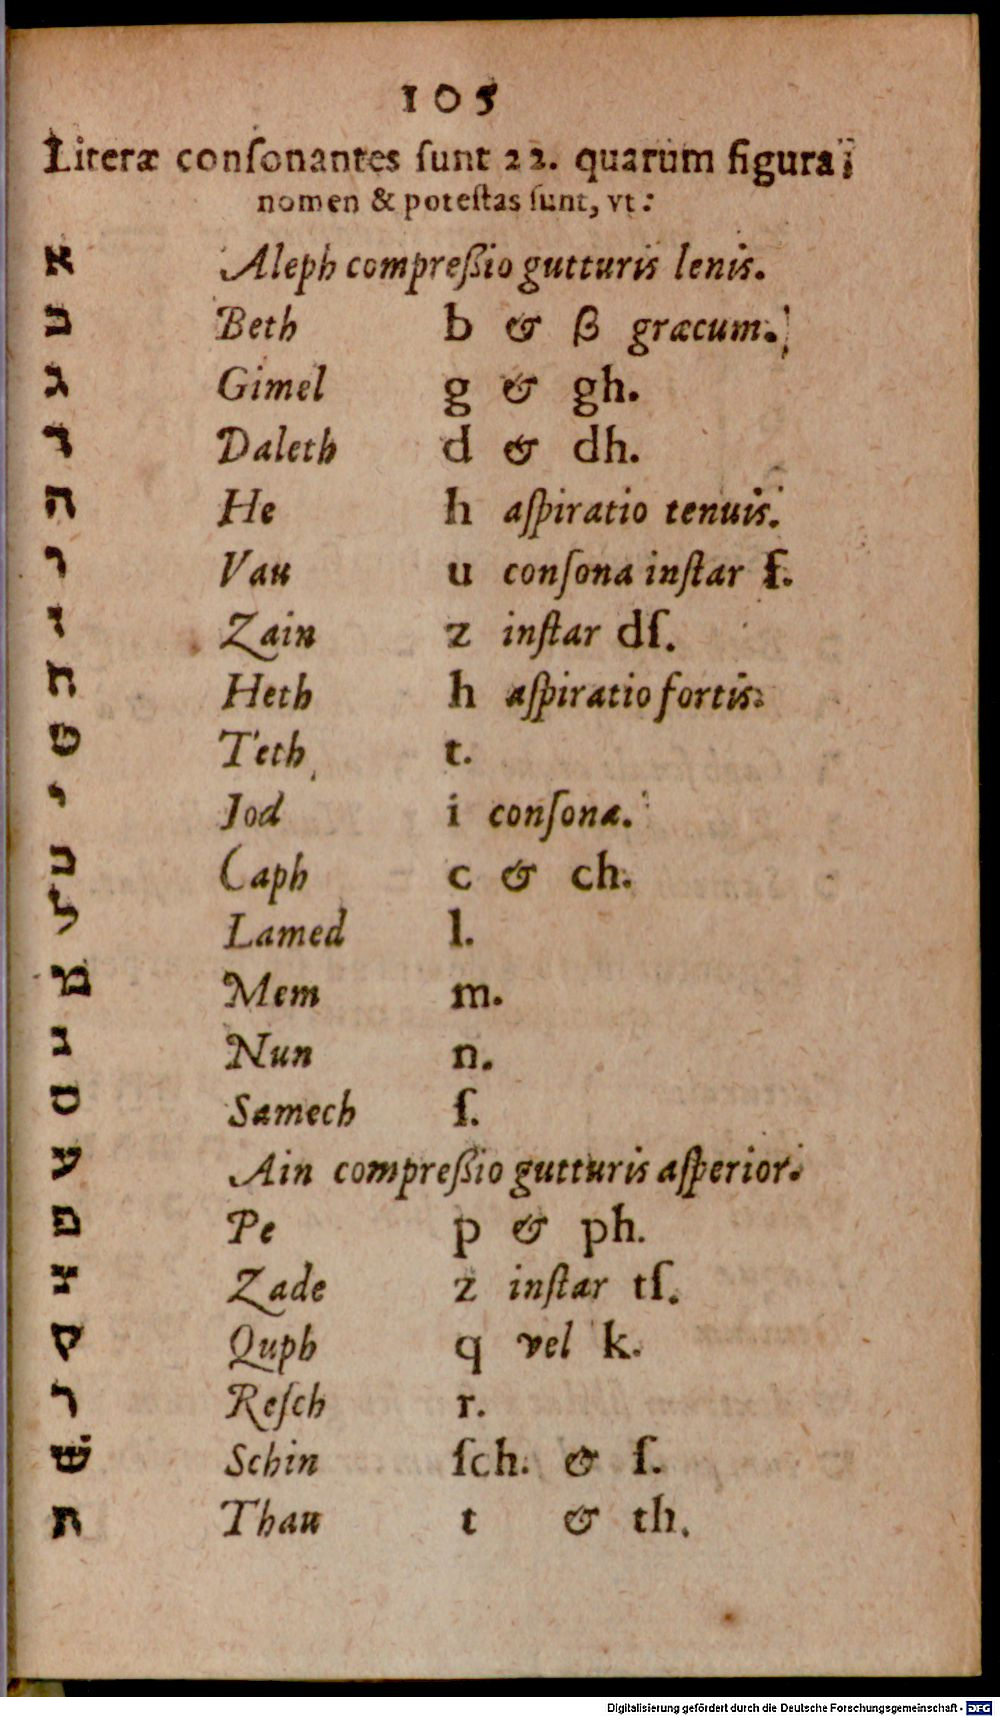 105
Literæ conſonantes ſunt 22. quarum figura,
nomen & poteſtas ſunt, vt:
א Aleph compreßio gutturis lenis.
ב Beth b & β græcum.
ג Gimel g & gh.
ד Daleth d & dh.
ה He h aſpiratio tenuis.
ו Vau u conſona inſtar f.
ז Zain z inſtar dſ.
ח Heth h aſpiratio fortis.
ט Teth t.
י Jod i conſona.
כ Caph c & ch.
ל Lamed l.
מ Mem m.
נ Nun n.
ס Samech ſ.
ע Ain compreßio gutturis aſperior.
פ Pe p & ph.
צ Zade z inſtar tſ.
ק Quph q vel k.
ר Reſch r.
שׁ Schin ſch. & ſ.
ת Thau t & th.
Digitalisierung gefördert durch die Deutsche Forschungsgemeinschaft - DFG